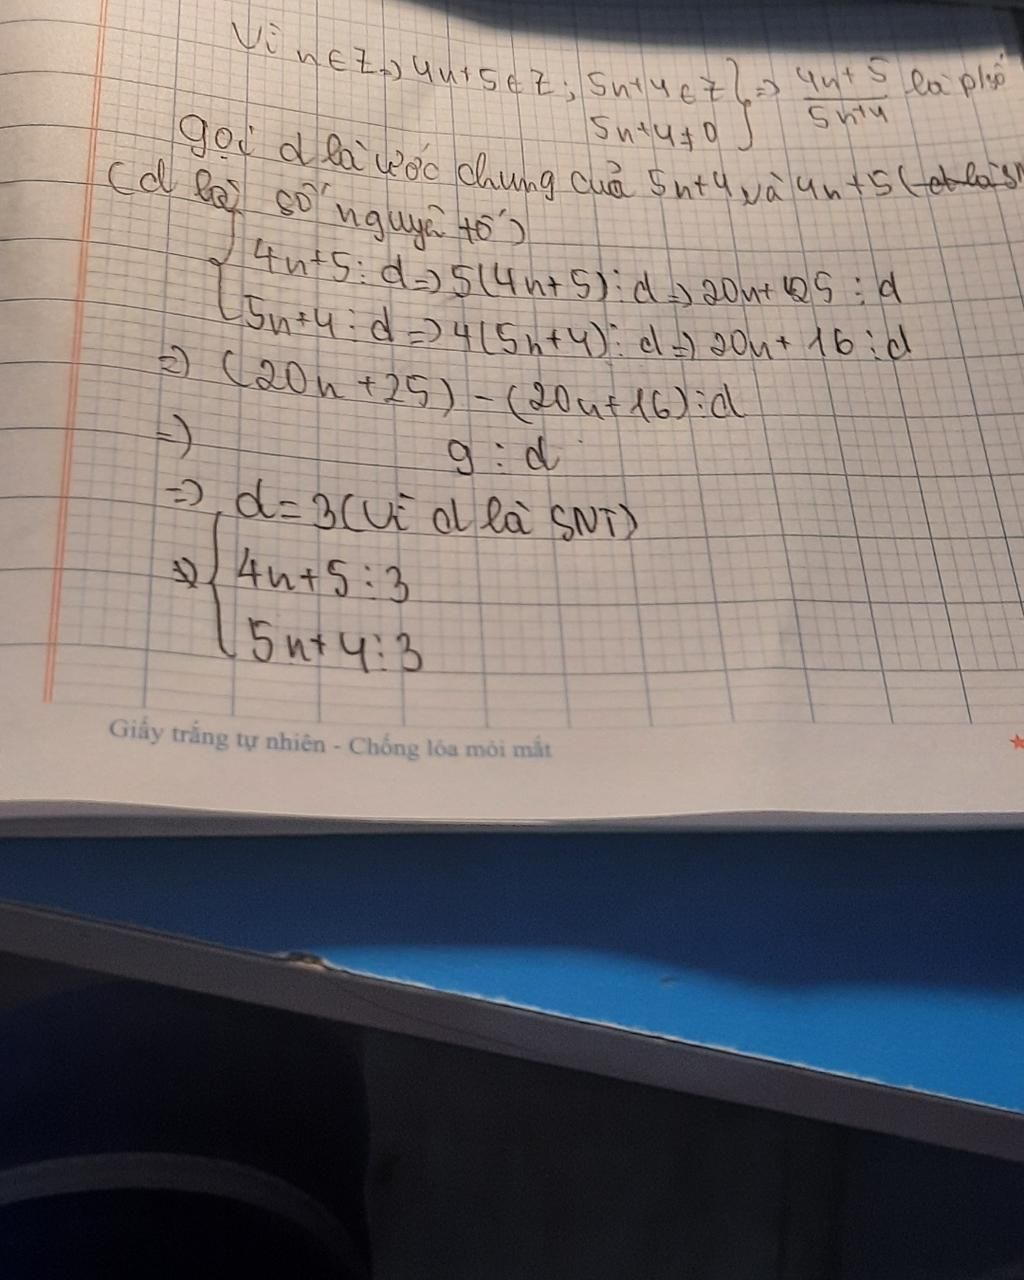 Vì n∈Z⇒4n+5∈Z; 5n+4∈Z } ⇒ (4n+5)/(5n+4) là phsố
5n+4≠0
gọi d là ước chung của 5n+4 và 4n+5 (
(d là số nguyên tố)
{ 4n+5⋮d⇒5(4n+5)⋮d⇒20n+25⋮d
5n+4⋮d⇒4(5n+4)⋮d⇒20n+16⋮d
⇒ (20n+25)-(20n+16)⋮d
⇒ 9⋮d
⇒ d=3(vì d là SNT)
⇒ { 4n+5⋮3
5n+4⋮3
Giấy trắng tự nhiên - Chống lóa mỏi mắt